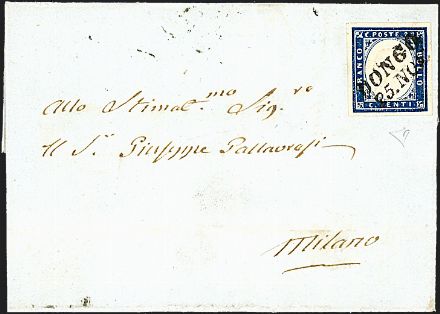 C. POSTE 20
FRANCO
BOLLO
C. VENTI
DONGO
25. NOV.
Allo Stimat.mo Sig.re
Il S.r Giuseppe Pallavresi
Milano